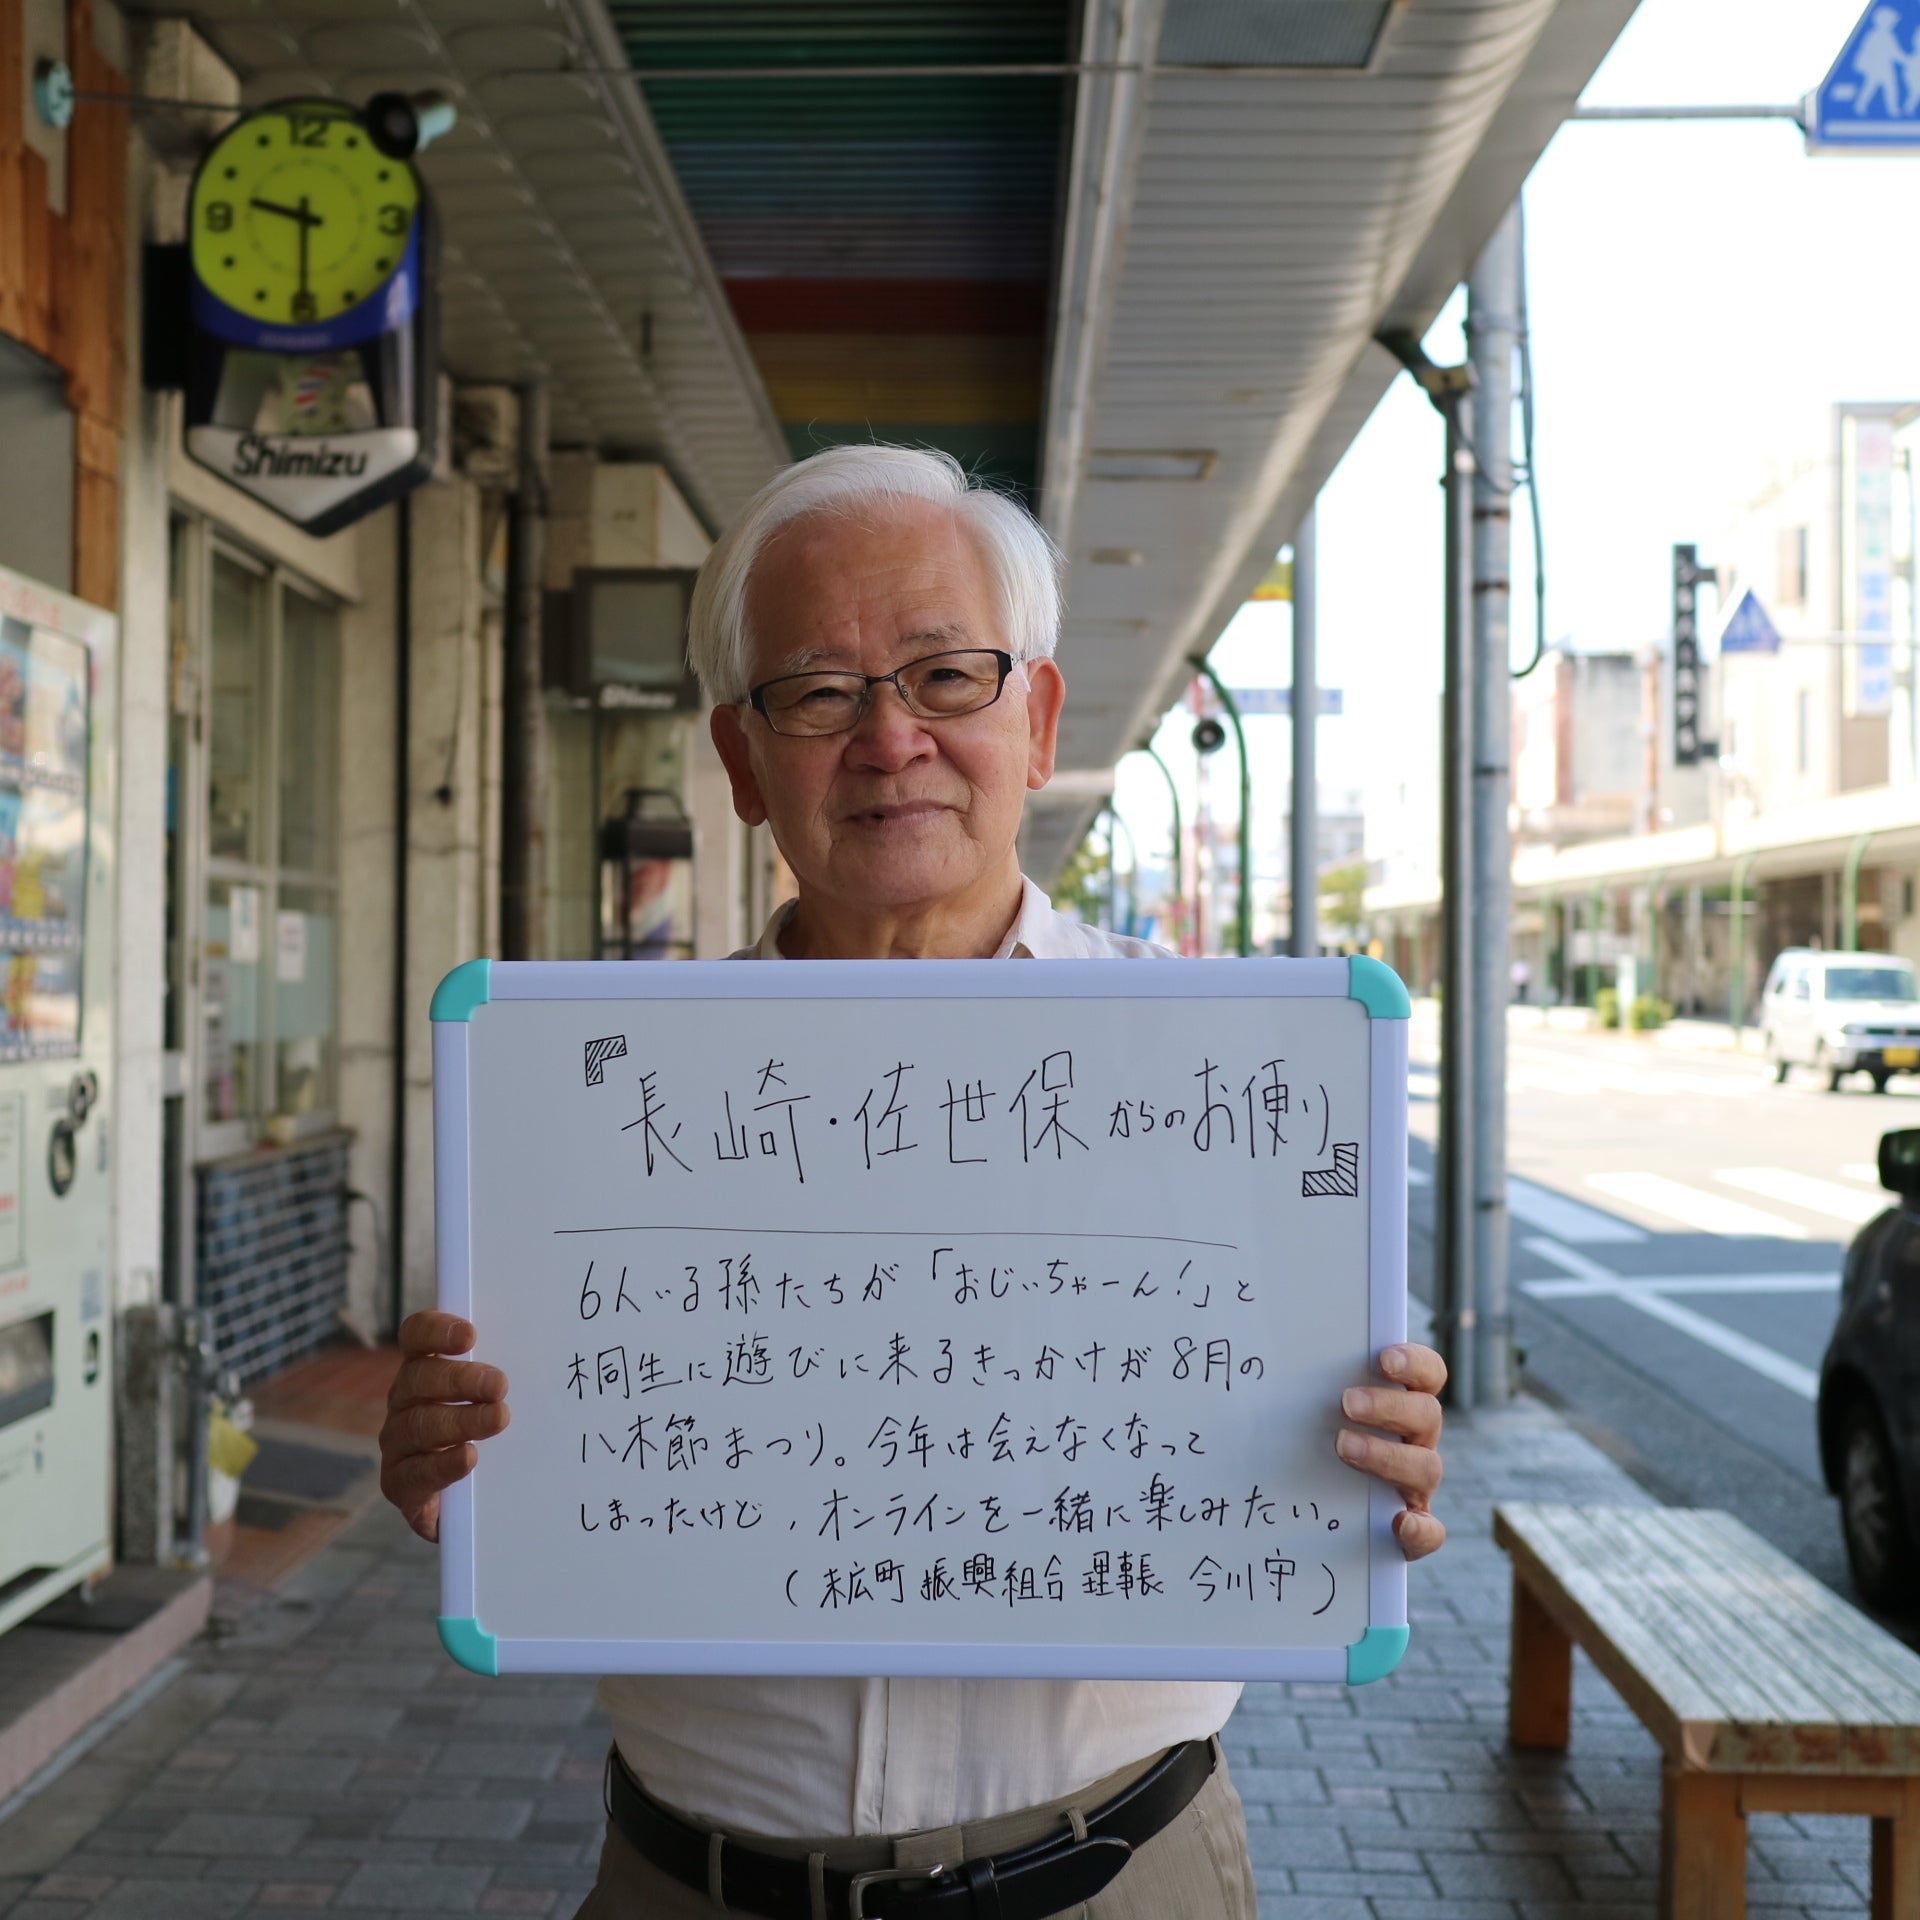 12
9
3
6
Shimizu
Shimizu
『長崎・佐世保からのお便り』
6人いる孫たちが「おじいちゃーん！」と
桐生に遊びに来るきっかけが8月の
八木節まつり。今年は会えなくなって
しまったけど、オンラインを一緒に楽しみたい。
（末広町振興組合理事長 今川守）